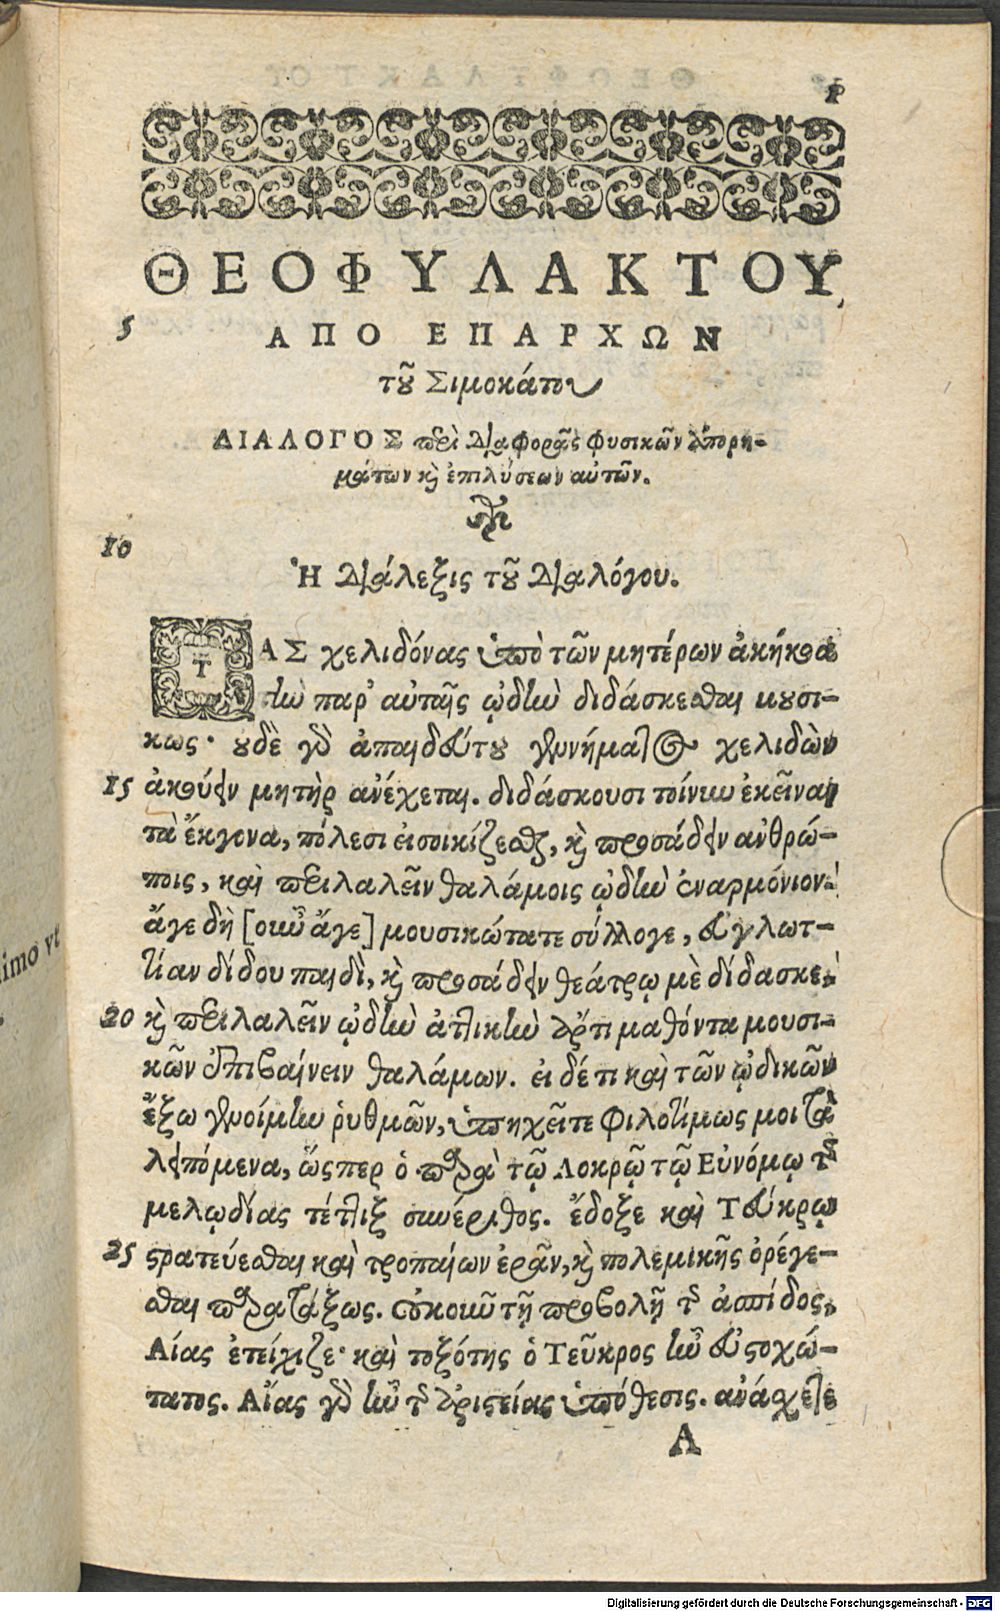 1
ΘΕΟΦΥΛΑΚΤΟΥ,
5 ΑΠΟ ΕΠΑΡΧΩΝ
τοῦ Σιμοκάτου
ΔΙΑΛΟΓΟΣ περὶ διαφορᾶς φυσικῶν ἀπορη-
μάτων καὶ ἐπιλύσεων αὐτῶν.
10
Ἡ διάλεξις τοῦ διαλόγου.
ΤΑΣ χελιδόνας ὑπὸ τῶν μητέρων ἀκήκοα
τὴν παρ' αὐταῖς ᾠδὴν διδάσκεσθαι μουσι-
κως· οὐδὲ γὸ ἀπαιδεύτου γεννήματος χελιδὼν
15 ἀκούειν μητὴρ ἀνέχεται. διδάσκουσι τοίνυν ἐκεῖναι
τὰ ἔκγονα, πόλεσι εἰσοικίζεσθαι, καὶ προσάδειν ἀνθρώ-
ποις, καὶ περιλαλεῖν θαλάμοις ᾠδὴν ἐναρμόνιον.
ἄγε δὴ [οὖν ἄγε] μουσικώτατε σύλλογε, εὐγλωτ-
τίαν δίδου παιδὶ, καὶ προσάδειν θεάτρῳ μὲ δίδασκε,
20 καὶ περιλαλεῖν ᾠδὴν ἀττικὴν ἄρτι μαθόντα μουσι-
κῶν ἐπιβαίνειν θαλάμων. εἰ δέ τι καὶ τῶν ᾠδικῶν
ἔξω γενοίμην ῥυθμῶν, ὑπηχεῖτε φιλοτίμως μοι τὰ
λειπόμενα, ὥσπερ ὁ παρὰ τῷ Λοκρῷ τῷ Εὐνόμῳ τῆς
μελῳδίας τέττιξ συνέριθος. ἔδοξε καὶ Τεύκρῳ
25 στρατεύεσθαι καὶ τροπαίων ἐρᾶν, καὶ πολεμικῆς ὀρέγε-
σθαι παρατάξεως. οὐκοῦν τῇ προβολῇ τῆς ἀσπίδος
Αίας ἐτείχιζε· καὶ τοξότης ὁ Τεῦκρος ἦν εὐστοχώ-
τατος. Αἴας γὸ ἦν τῆς ἀριστείας ὑπόθεσις. ἀνάσχεσθε
A
Digitalisierung gefördert durch die Deutsche Forschungsgemeinschaft - DFG